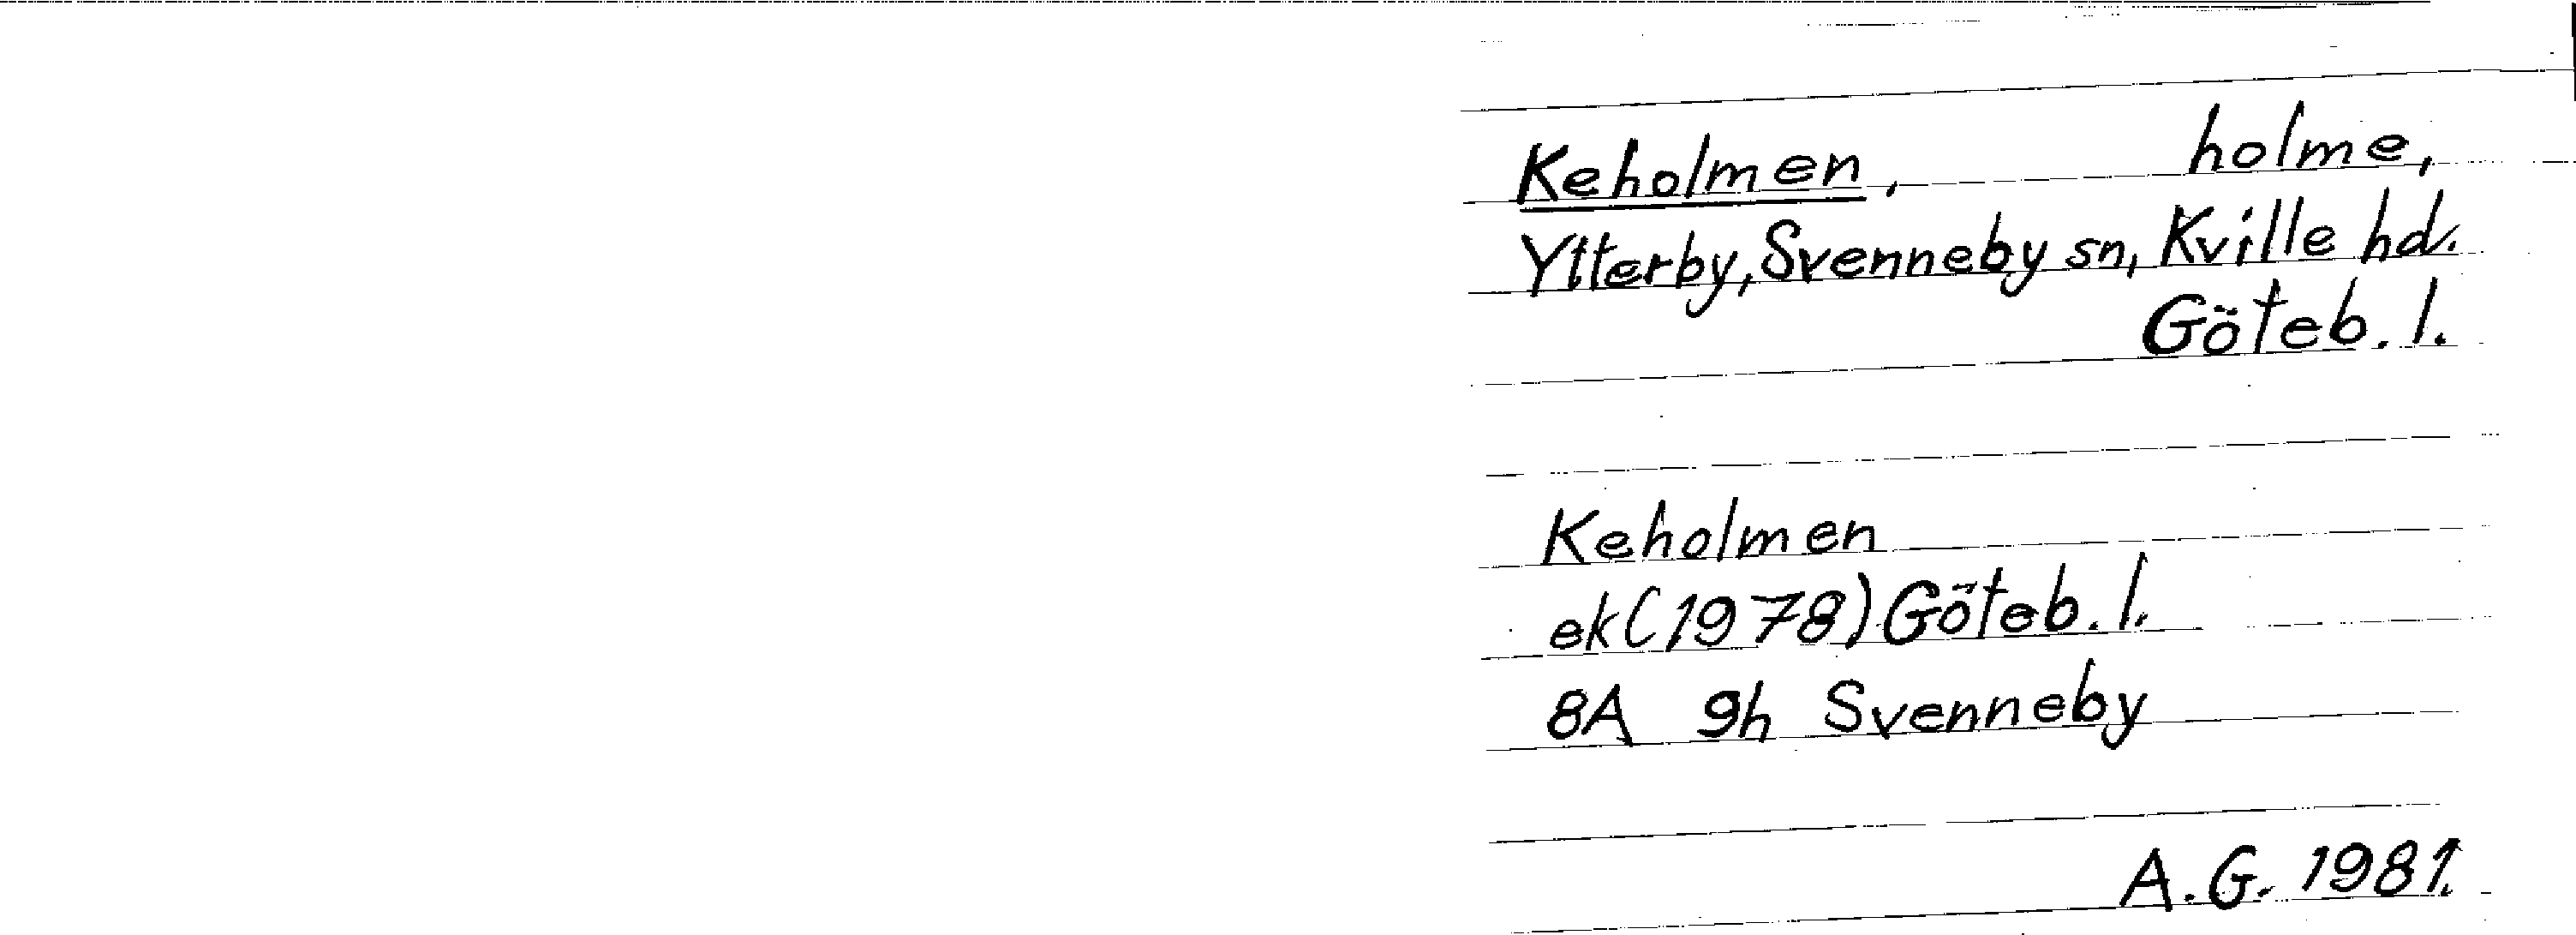 Keholmen, holme,
Ytterby, Svenneby sn, Kville hd.
Göteb. l.
Keholmen
ek (1978) Göteb. l.
8A 9h Svenneby
A.G. 1981.